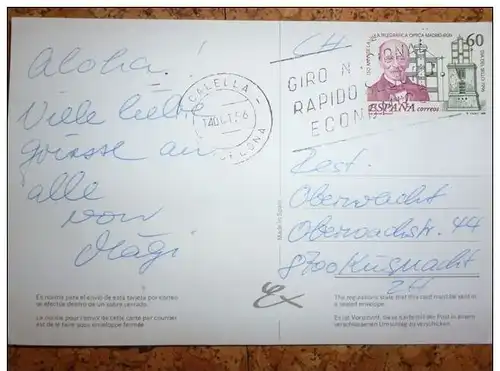 Aloha!
Viele liebe
grüsse an
alle
von
Mägi
CALELLA
GIRO N
RAPIDO
ECON
CH
60
ESPAÑA
correos
Rest.
Oberwacht
Oberwachtstr. 44
8700 Küsnacht
ZH
Made in Spain
Es norma para el envío de esta tarjeta por correo
se efectúe dentro de un sobre cerrado.
La norme pour l'envoi de cette carte par courrier
est de le faire sous enveloppe fermée.
The regulations state that this card must be sent in
a sealed envelope.
Es ist Vorschrift, diese Karte mit der Post in einem
verschlossenen Umschlag zu verschicken.